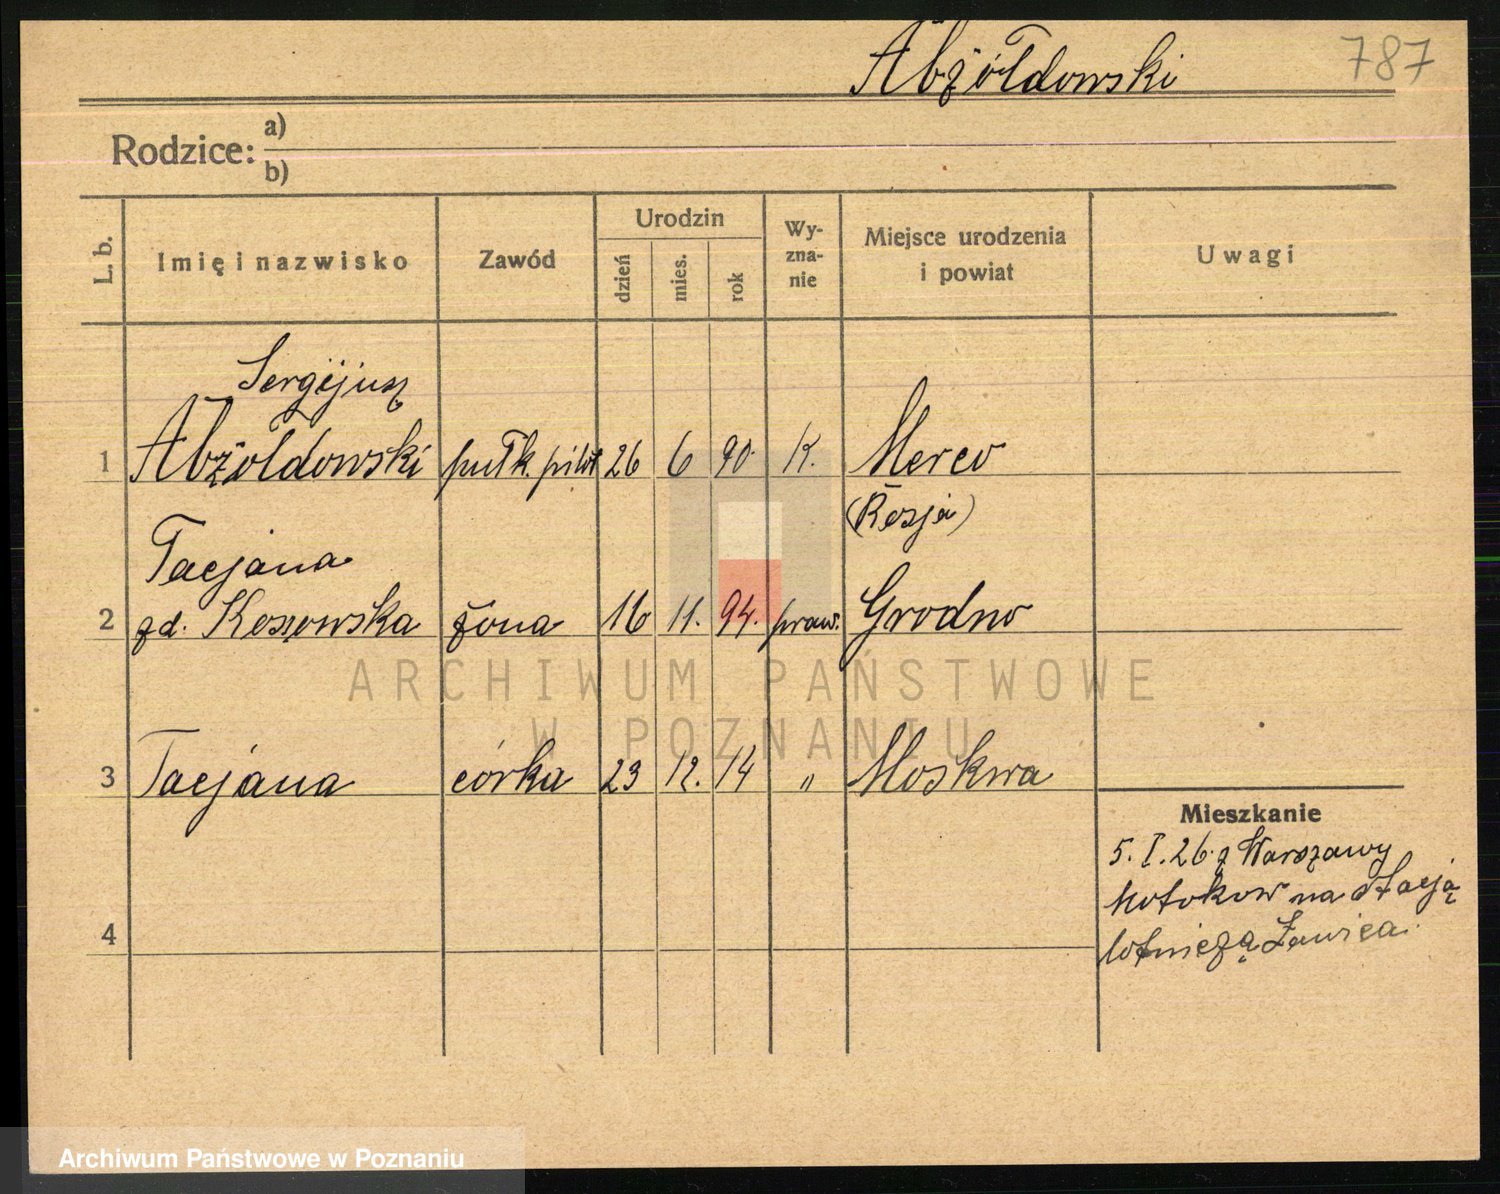 Abżółdowski 787
Rodzice: a)
b)
L. b. Imię i nazwisko Zawód Urodzin dzień mies. rok Wy-zna-nie Miejsce urodzenia i powiat Uwagi
Sergijusz
1 Abżółdowski pułk. pilot 26 6 90. K. Merev
(Rosja)
Tacjana
2 zd. Koszowska żona 16 11. 94. praw. Grodno
ARCHIWUM PAŃSTWOWE
W POZNANIU
3 Tacjana córka 23 12. 14 " Moskwa
Mieszkanie
5. I. 26. z Warszawy
Kotokow na stację
4
lotniczą Ławica.
Archiwum Państwowe w Poznaniu